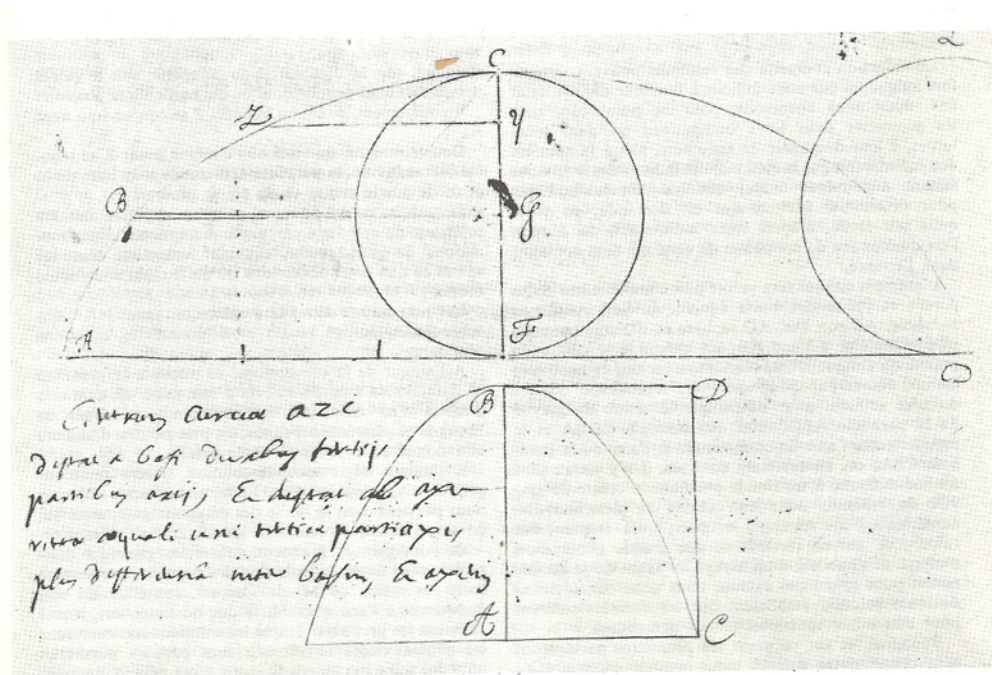 C
L
Z
Y
B
G
A
F
D
B
D
Centrum curvæ AZC
distat a basi duabus tertijs
partibus axis, Et distat ab axe
recta æquali uni tertiæ parti axis,
plus differentiâ inter basim, Et axem
A
C